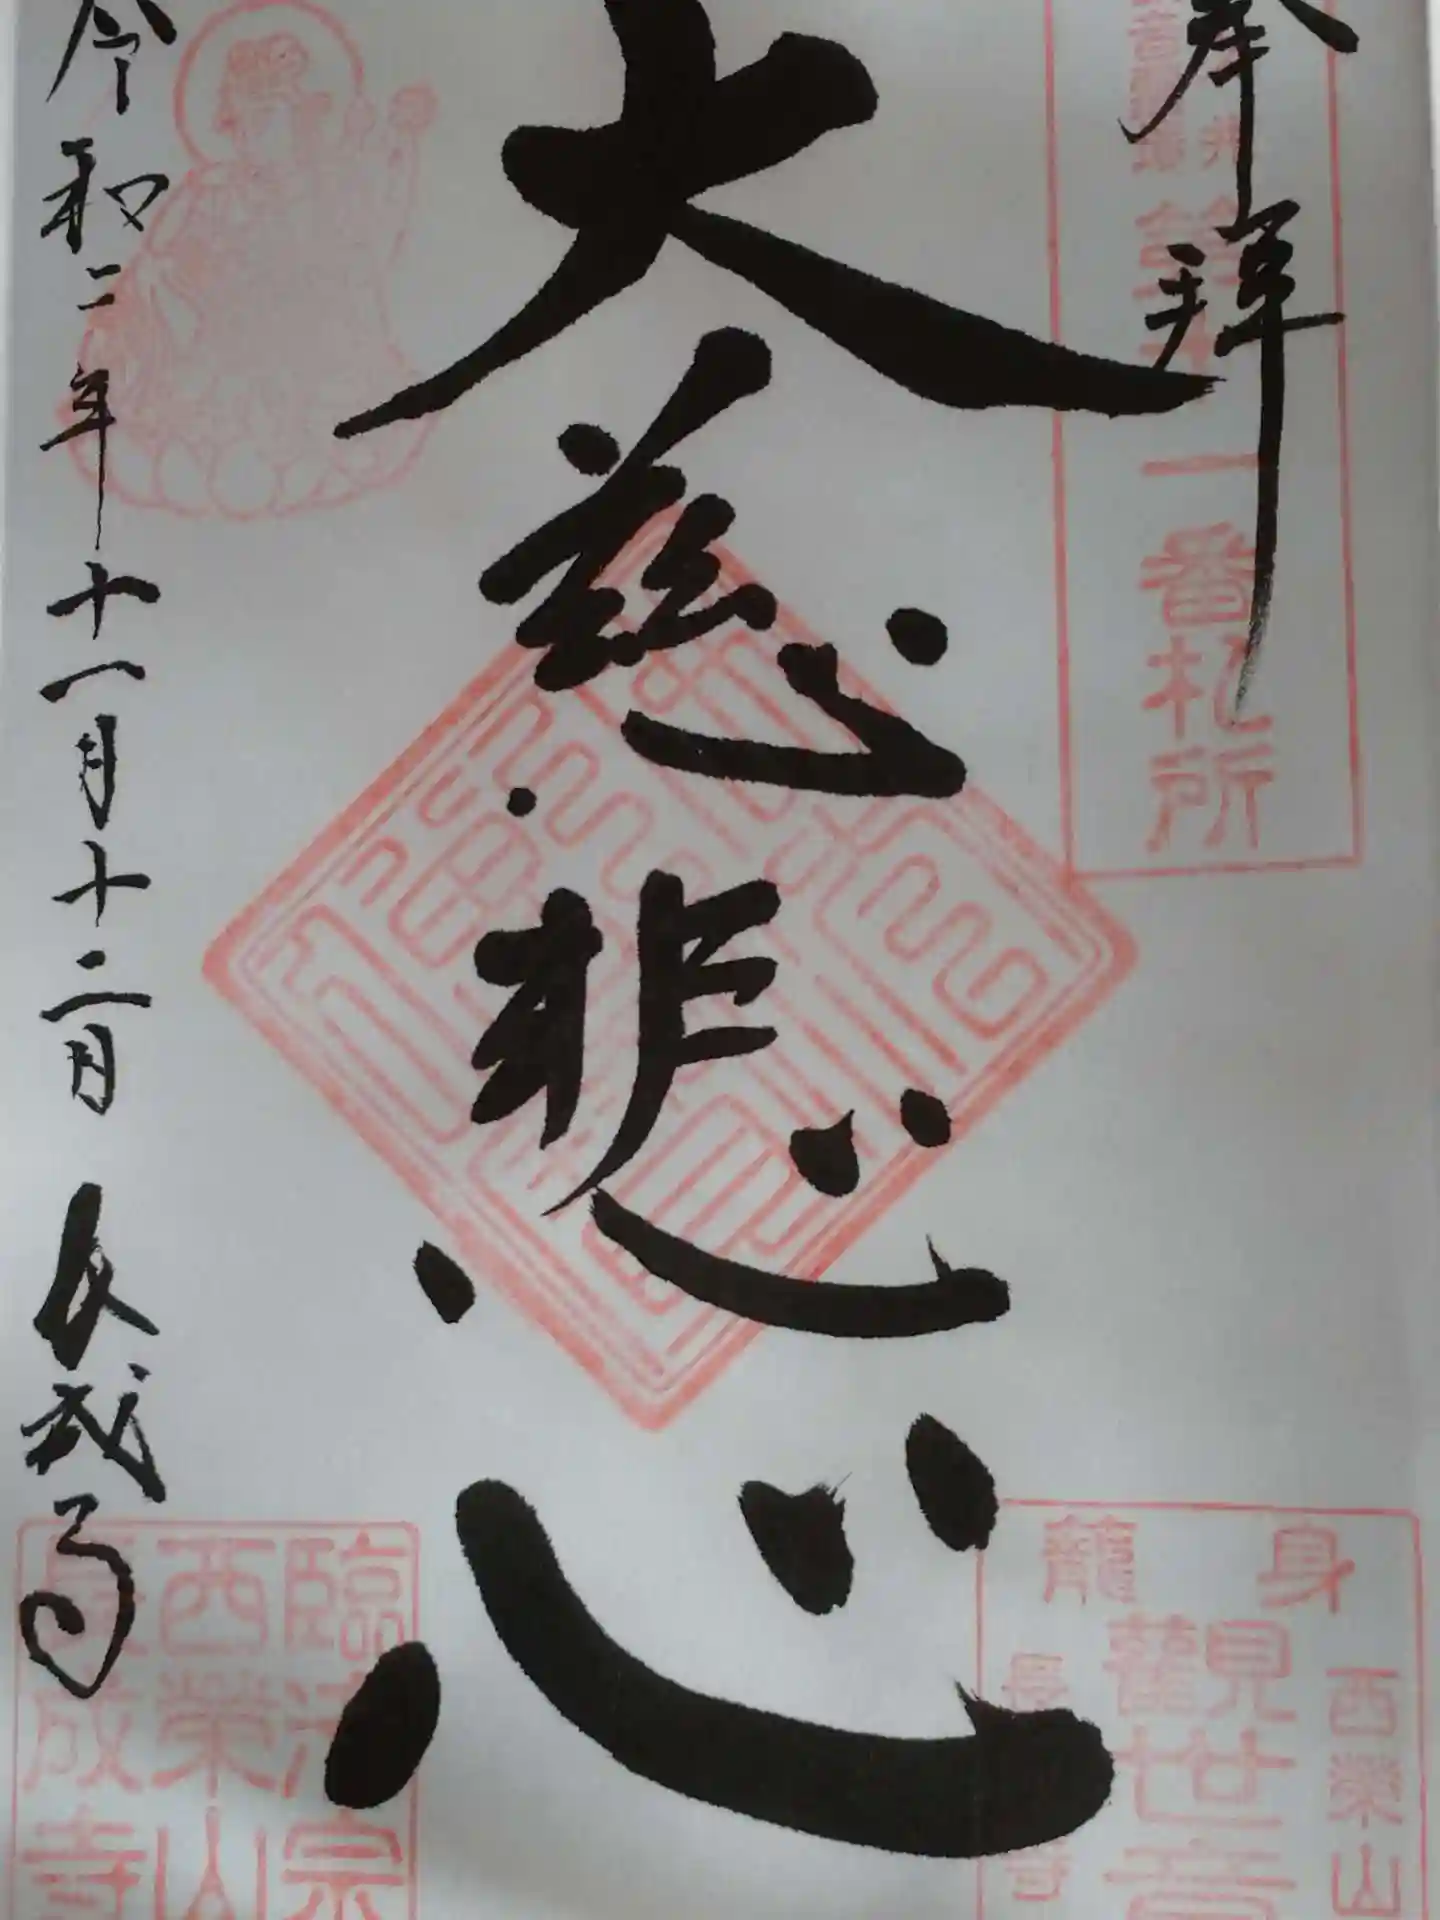 奉拝
第十一番札所
大慈悲心
令和二年十一月十二日 長成寺
身籠
西榮山
觀世音
臨済宗
西榮山
長成寺